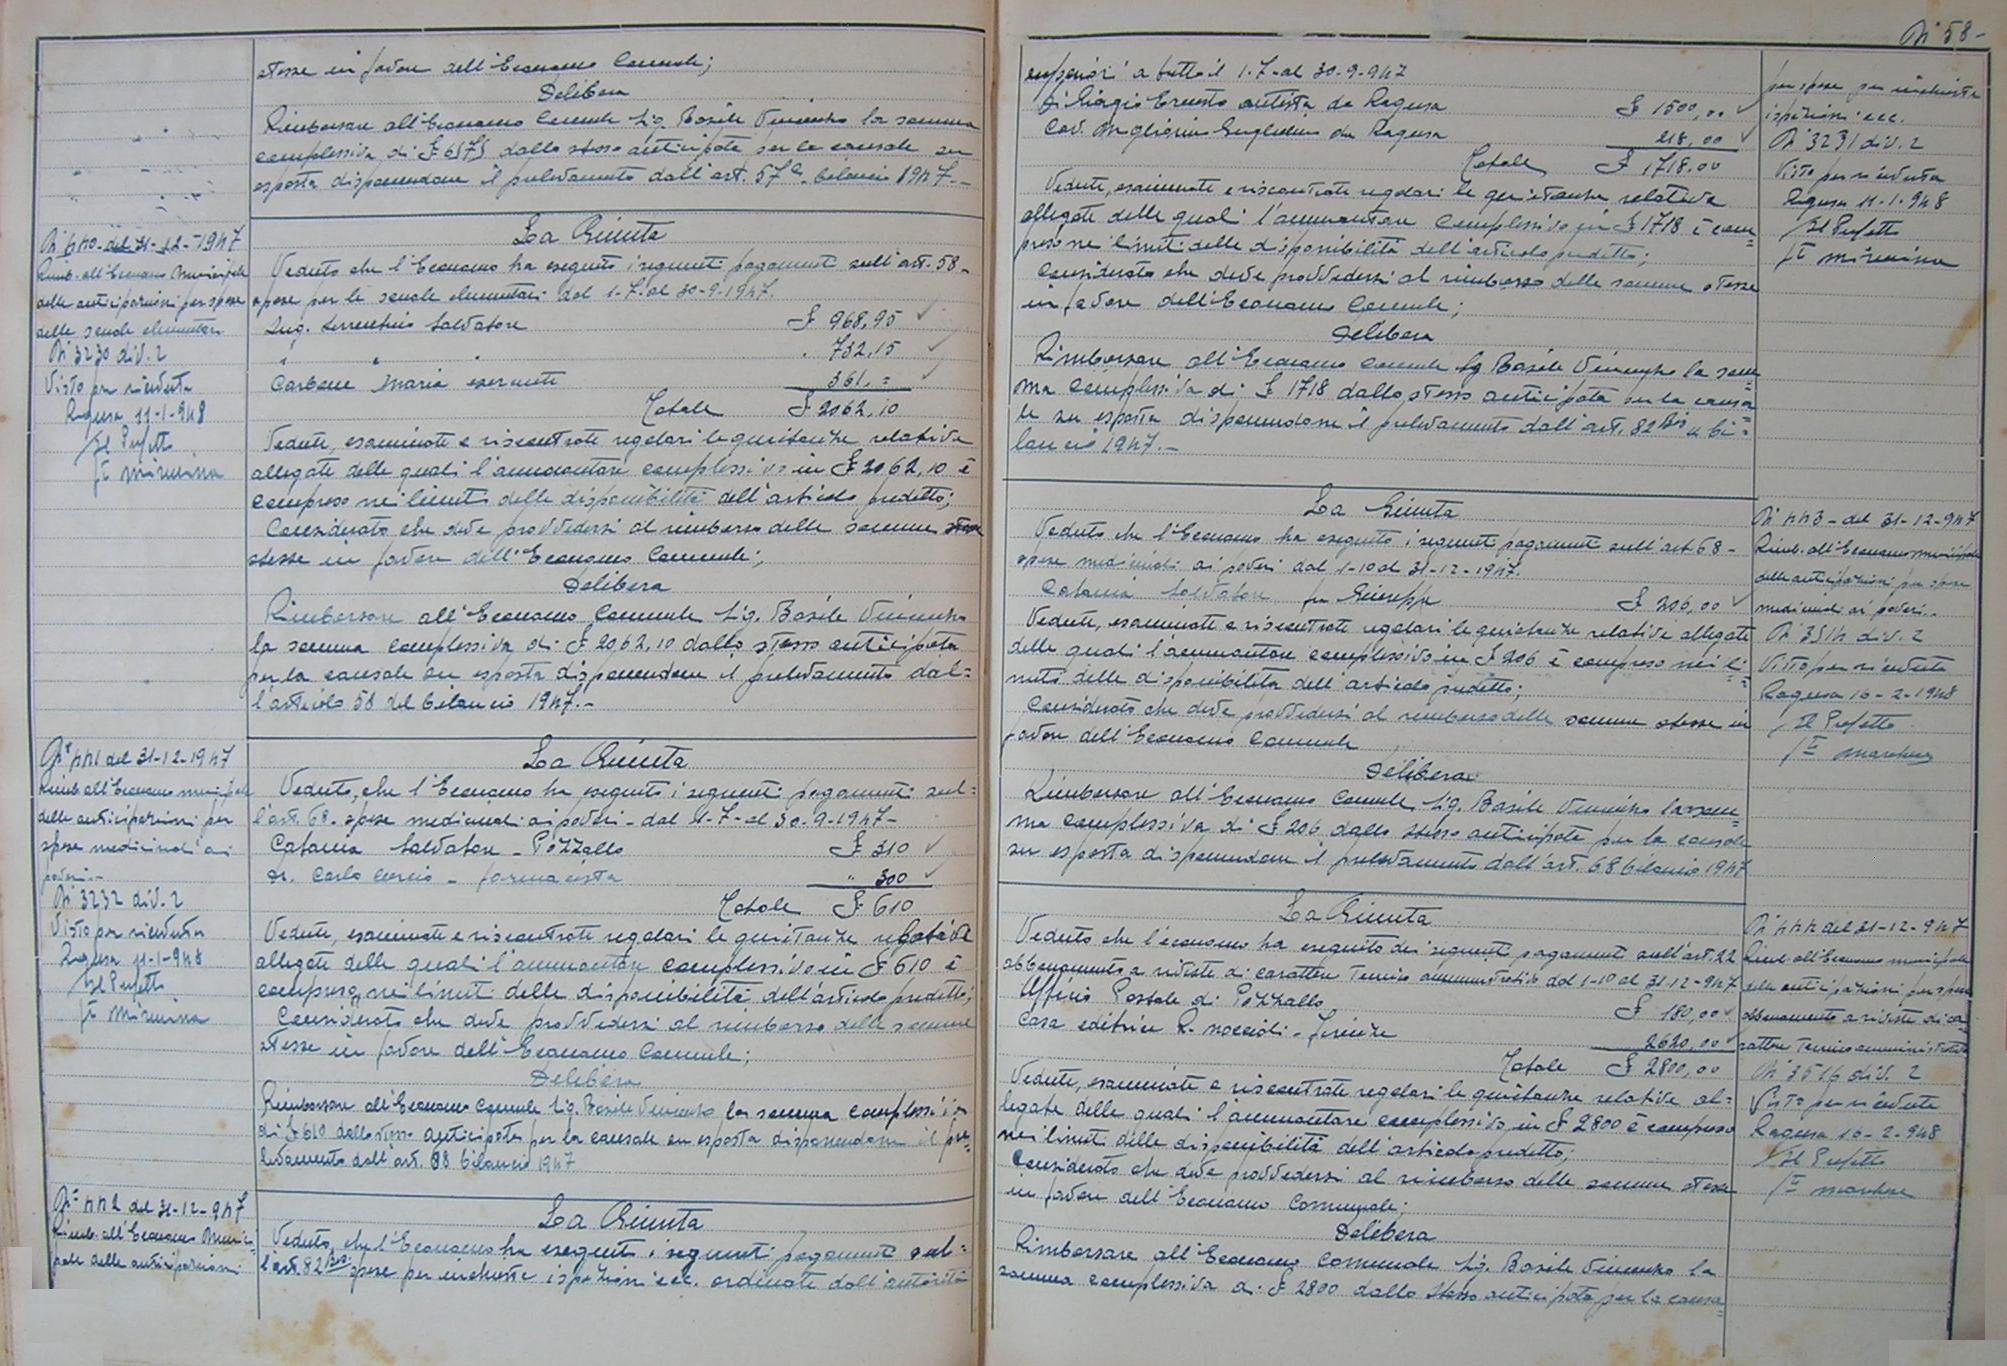 stesse in favore dell'Economo Comunale;
Delibera
Rimborsare all'Economo Comunale Sig. Basile Vincenzo la somma
complessiva di £ 6575 dallo stesso anticipata per la causale su
esposta disponendone il prelevamento dall'art. 57 bilancio 1947.-
N° 440 del 31-12-1947
Rimb. all'Economo Municipale
delle anticipazioni per spese
delle scuole elementari
N° 3230 div. 2
Visto per ricevuta
Ragusa 11-1-948
Il Prefetto
Fto
La Giunta
Veduto che l'Economo ha eseguito i seguenti pagamenti sull'art. 58-
spese per le scuole elementari dal 1-7 al 30-9-1947.
Salvatore £ 968,95
" " " 732,15
Carbone Maria 361,=
Totale £ 2062,10
Vedute, esaminate e riscontrate regolari le quietanze relative
allegate delle quali l'ammontare complessivo in £ 2062,10 è
compreso nei limiti delle disponibilità dell'articolo predetto;
Considerato che deve provvedersi al rimborso delle somme stesse
stesse in favore dell'Economo Comunale;
Delibera
Rimborsare all'Economo Comunale Sig. Basile Vincenzo
la somma complessiva di £ 2062,10 dallo stesso anticipata
per la causale su esposta disponendone il prelevamento dal=
l'articolo 58 del bilancio 1947.-
N° 441 del 31-12-1947
Rimb. all'Economo municipale
delle anticipazioni per
spese medicinali ai
poveri.-
N° 3232 div. 2
Visto per ricevuta
Ragusa 11-1-948
Il Prefetto
Fto
La Giunta
Veduto, che l'Economo ha eseguito i seguenti pagamenti sul=
l'art. 68- spese medicinali ai poveri - dal 1-7- al 30-9-1947-
Catania Salvatore - Pozzallo £ 310
Dr. Carlo - farmacista " 300
Totale £ 610
Vedute, esaminate e riscontrate regolari le quietanze relative
allegate delle quali l'ammontare complessivo in £ 610 è
compreso nei limiti delle disponibilità dell'articolo predetto;
Considerato che deve provvedersi al rimborso delle somme
stesse in favore dell'Economo Comunale;
Delibera
Rimborsare all'Economo Comunale Sig. Basile Vincenzo la somma complessiva
di £ 610 dallo stesso anticipata per la causale su esposta disponendone il pre=
levamento dall'art. 68 bilancio 1947
N° 442 del 31-12-947
Rimb. all'Economo Munici=
pale delle anticipazioni
La Giunta
Veduto, che l'Economo ha eseguiti i seguenti pagamenti sul=
l'art. 82 bis spese per inchieste ispezioni ecc. ordinate dall'autorità
N° 58-
superiori a tutto il 1-7- al 30-9-947
Di Giorgio Ernesto autista da Ragusa £ 1500,00
Cav. Guglielmo da Ragusa 218,00
Totale £ 1718,00
Vedute, esaminate e riscontrate regolari le quietanze relative
allegate delle quali l'ammontare complessivo in £ 1718 è com=
preso nei limiti delle disponibilità dell'articolo predetto;
Considerato che deve provvedersi al rimborso delle somme stesse
in favore dell'Economo Comunale;
Delibera
Rimborsare all'Economo Comunale Sig. Basile Vincenzo la som=
ma complessiva di £ 1718 dallo stesso anticipata per la causa=
le su esposta disponendone il prelevamento dall'art. 82 bis bi=
lancio 1947.-
per spese per inchieste
ispezioni ecc.
N° 3231 div. 2
Visto per ricevuta
Ragusa 11-1-948
Il Prefetto
Fto
La Giunta
Veduto che l'Economo ha eseguito i seguenti pagamenti sull'art. 68-
spese medicinali ai poveri dal 1-10 al 31-12-1947.
Catania Salvatore fu Giuseppe £ 206,00
Vedute, esaminate e riscontrate regolari le quietanze relative allegate
delle quali l'ammontare complessivo in £ 206 è compreso nei li=
miti delle disponibilità dell'articolo predetto;
Considerato che deve provvedersi al rimborso delle somme stesse in
favore dell'Economo Comunale
Delibera
Rimborsare all'Economo Comunale Sig. Basile Vincenzo la som=
ma complessiva di £ 206 dallo stesso anticipata per la causale
su esposta disponendone il prelevamento dall'art. 68 bilancio 1947
N° 443 - del 31-12-947
Rimb. all'Economo municipale
delle anticipazioni per spese
medicinali ai poveri.-
N° 3514 div. 2
Visto per ricevuta
Ragusa 16-2-1948
Il Prefetto
Fto
La Giunta
Veduto che l'economo ha eseguito dei seguenti pagamenti sull'art. 22
abbonamento a riviste di carattere Tecnico amministrativo dal 1-10 al 31-12-947
Ufficio Postale di Pozzallo £ 180,00
Casa editrice R. Noccioli - Firenze 2620,00
Totale £ 2800,00
Vedute, esaminate e riscontrate regolari le quietanze relative al=
legate delle quali l'ammontare complessivo in £ 2800 è compreso
nei limiti delle disponibilità dell'articolo predetto;
Considerato che deve provvedersi al rimborso delle somme stesse
in favore dell'Economo Comunale;
Delibera
Rimborsare all'Economo Comunale Sig. Basile Vincenzo la
somma complessiva di £ 2800 dallo stesso anticipata per la causa=
N° 444 del 31-12-947
Rimb. all'Economo municipale
delle anticipazioni per spese
abbonamento a riviste di ca=
rattere Tecnico amministrativo
N° 3516 div. 2
Visto per ricevuta
Ragusa 16-2-948
Il Prefetto
Fto